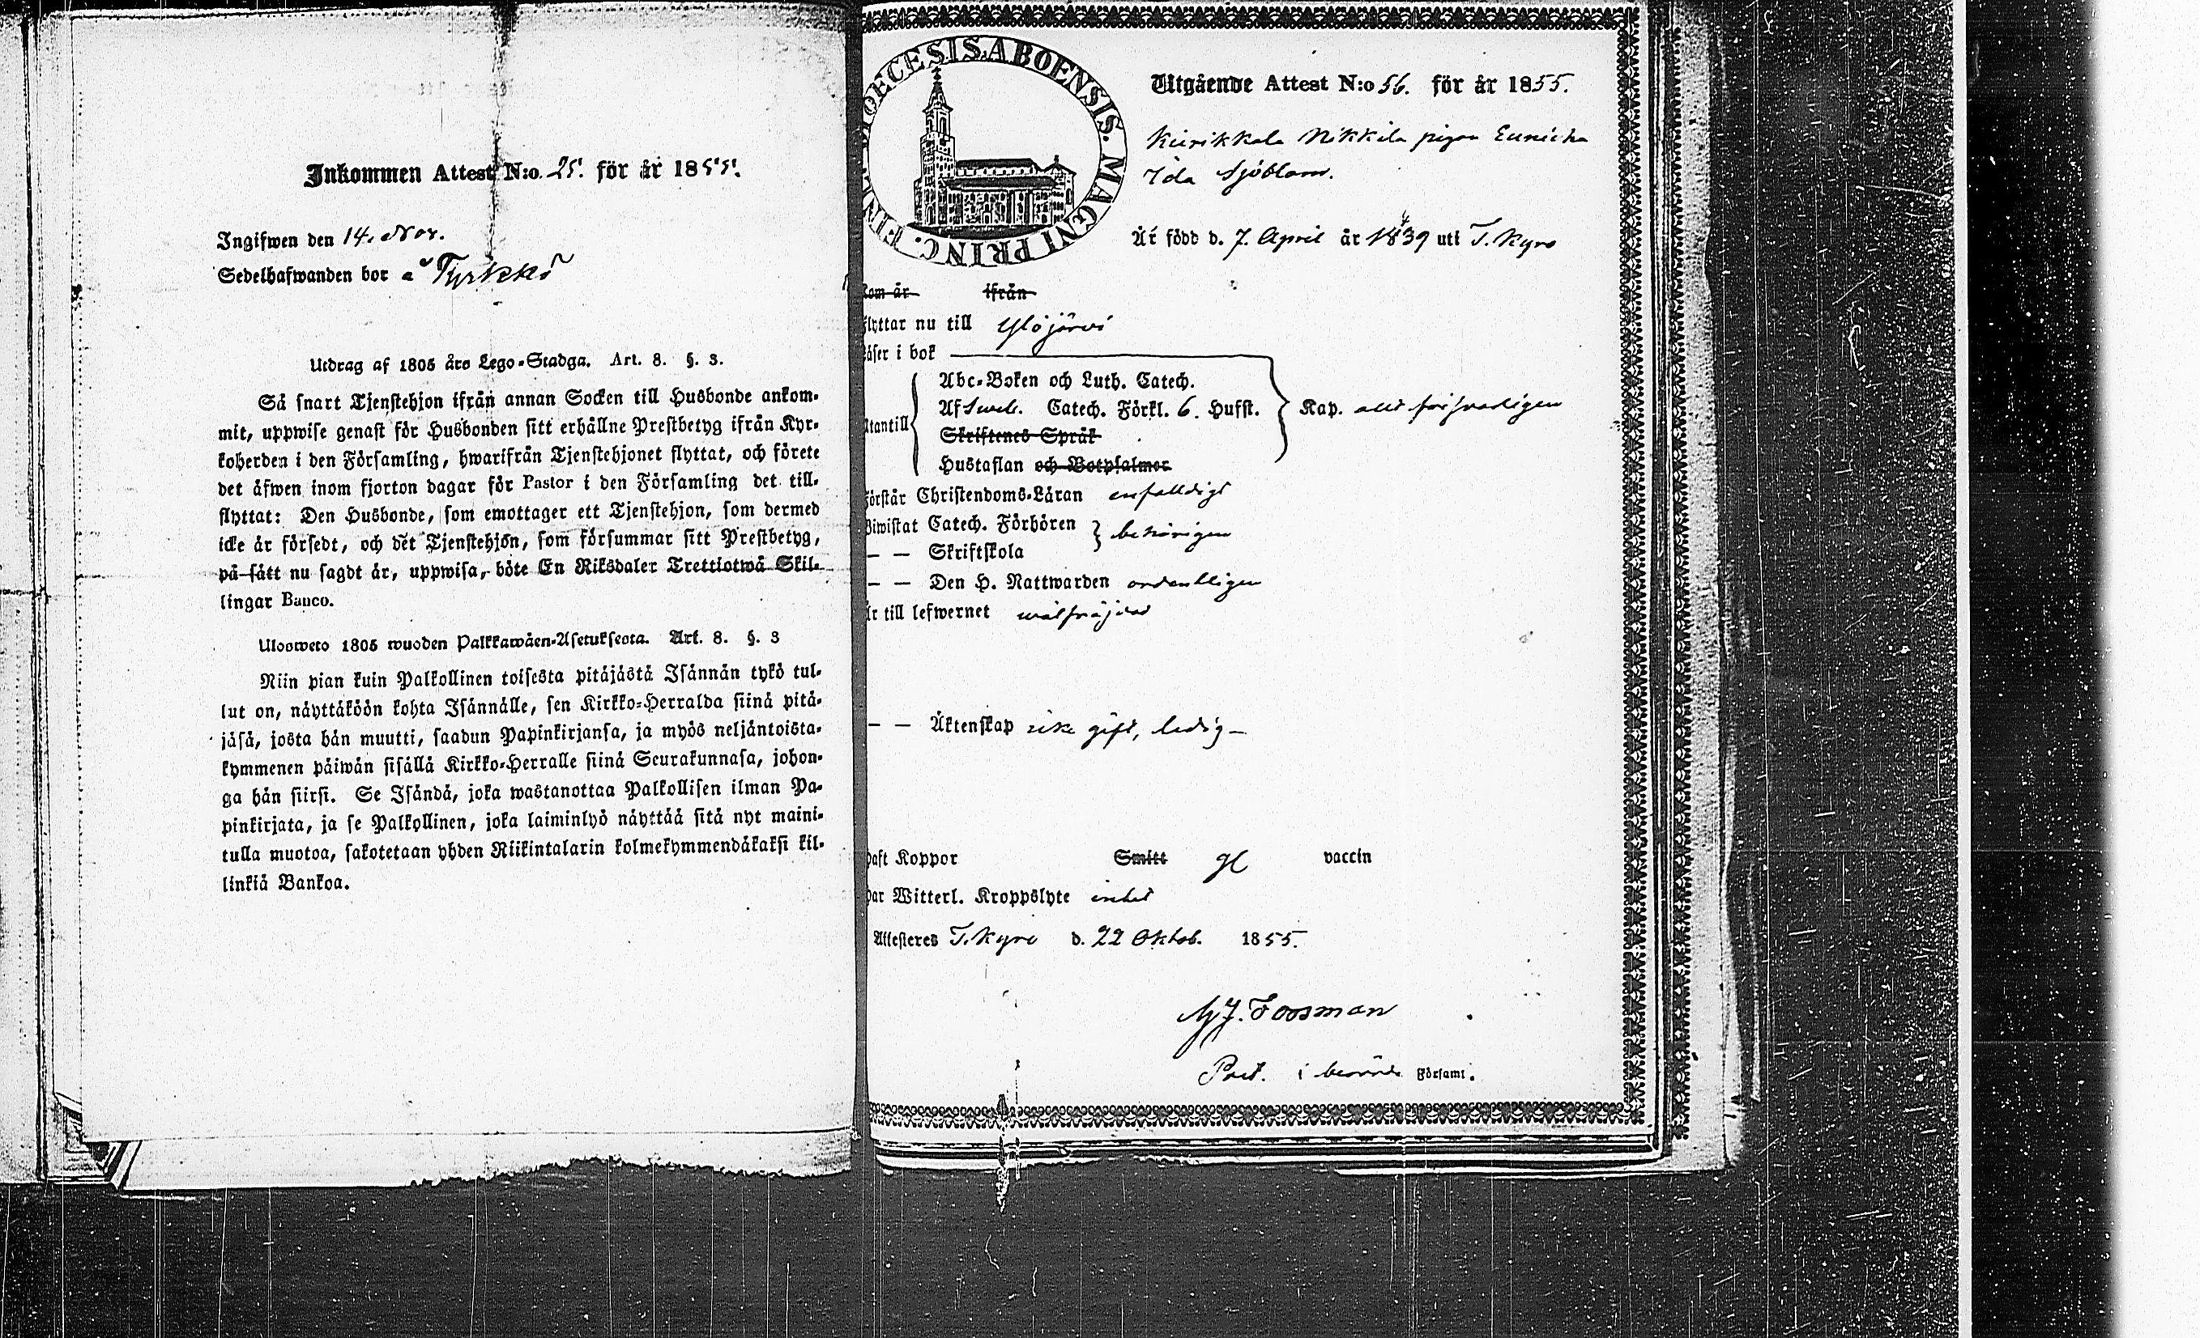 Inkommen Attest N:o 25. för år 1855.
Ingifwen den 14. Nov.
Sedelhafwanden bor å Tyrkkö
Utdrag af 1805 års Lego-Stadga. Art. 8. §. 3.
Så snart Tjenstehjon ifrån annan Socken till Husbonde ankom-
mit, uppwise genast för Husbonden sitt erhållne Prestbetyg ifrån Kyr-
koherden i den Församling, hwarifrån Tjenstehjonet flyttat, och förete
det äfwen inom fjorton dagar för Pastor i den Församling det till-
flyttat: Den Husbonde, som emottager ett Tjenstehjon, som dermed
icke är försedt, och det Tjenstehjon, som försummar sitt Prestbetyg,
på sätt nu sagdt är, uppwisa, böte En Riksdaler Trettiotwå Skil-
lingar Banco.
Ulosweto 1805 wuoden Palkkawäen-Asetuksesta. Art. 8. §. 3
Niin pian kuin Palkollinen toisesta pitäjästä Isännän tykö tul-
lut on, näyttäköön kohta Isännälle, sen Kirkko-Herralda siinä pitä-
jäsä, josta hän muutti, saadun Papinkirjansa, ja myös neljäntoista-
kymmenen päiwän sisällä Kirkko-Herralle siinä Seurakunnasa, johon-
ga hän siirsi. Se Isändä, joka wastanottaa Palkollisen ilman Pa-
pinkirjata, ja se Palkollinen, joka laiminlyö näyttää sitä nyt maini-
tulla muotoa, sakotetaan yhden Riikintalarin kolmekymmendäkaksi kil-
linkiä Bankoa.
DIOECESIS ABOENSIS. MAGNI PRINC. FINL.
Utgående Attest N:o 56. för år 1855.
Kierikkala Nikkila pigan Eunicka
Ida Sjöblom.
Är född d. 7. April år 1839 uti T. Kyro
kom år ifrån
flyttar nu till Ylöjärvi
läser i bok
Abc-Boken och Luth. Catech.
Af Sweb. Catech. Förkl. 6. Hufst. Kap. allt försvarligen
Utantill
Skriftenes Språk
Hustaflan och Botpsalmer
förstår Christendoms-Läran enfalldigt
Biwistat Catech. Förhören behörigen
— — Skriftskola
— — Den H. Nattwarden ordentligen
är till lefwernet wälfrägdad
— — Äktenskap icke gift, ledig —
haft Koppor Smitt vaccin
har Witterl. Kroppslyte intet
Attesteres T. Kyro d. 22 Oktob. 1855.
Foosman
Past. i berörde Församl.